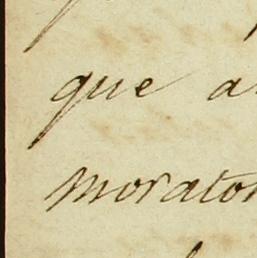 que a
morator